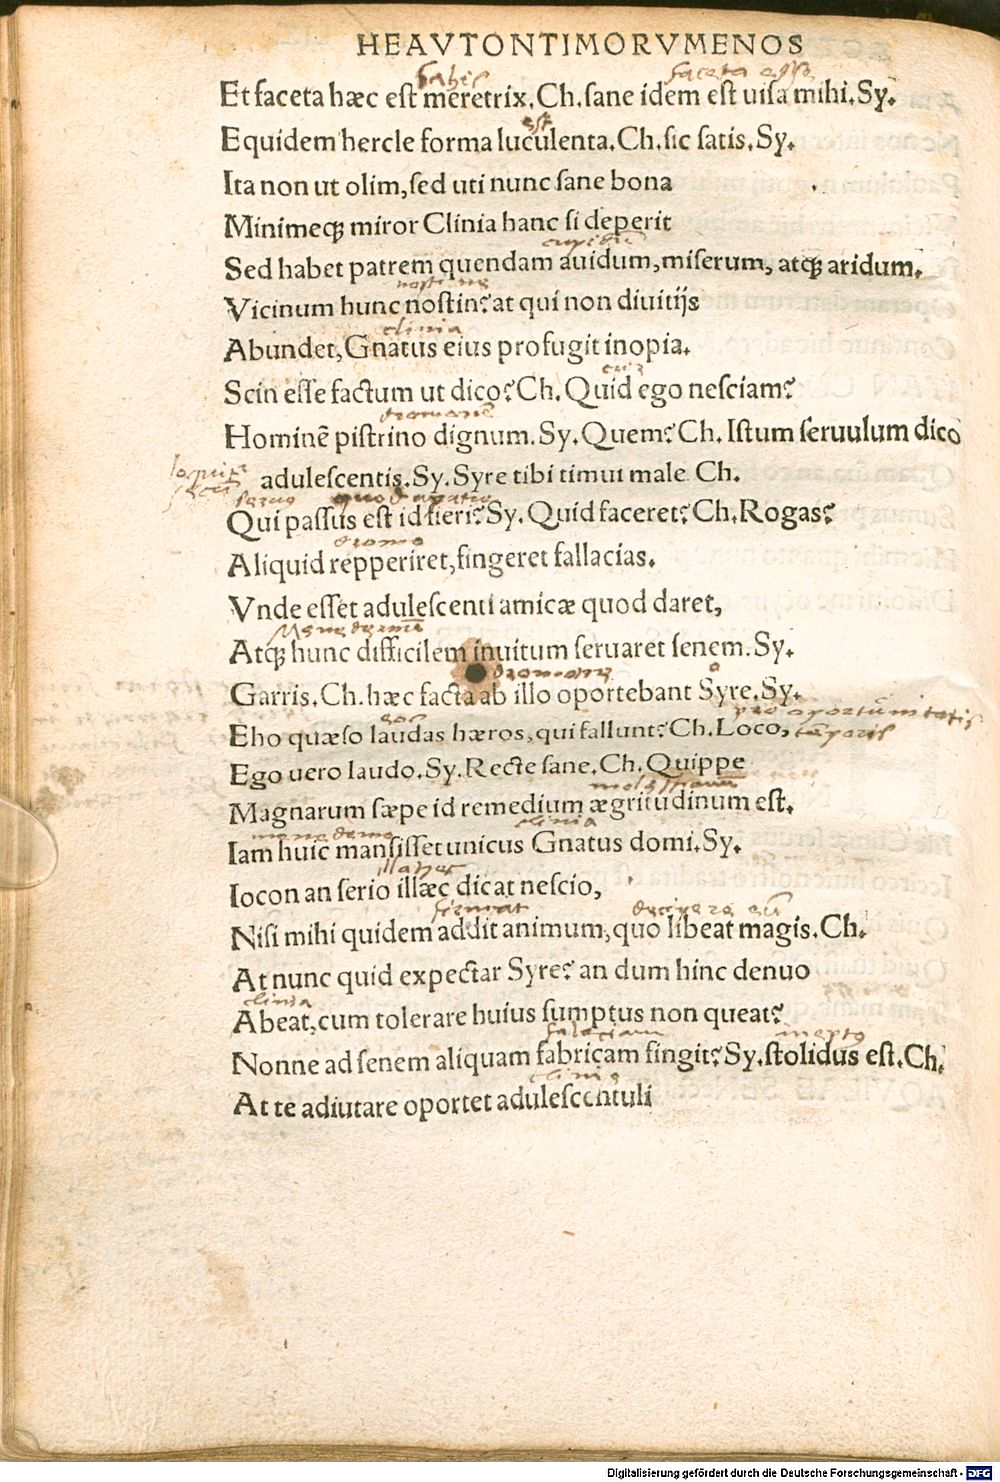 HEAVTONTIMORVMENOS
faceta esse
Et faceta hæc est meretrix. Ch. sane idem est uisa mihi. Sy.
est
Equidem hercle forma luculenta. Ch. sic satis. Sy.
Ita non ut olim, sed uti nunc sane bona
Minimeqꝫ miror Clinia hanc si deperit
cupidū
Sed habet patrem quendam auidum, miserum, atqꝫ aridum.
nostine
Vicinum hunc nostin? at qui non diuitijs
clinia
Abundet, Gnatus eius profugit inopia.
cur
Scin esse factum ut dico? Ch. Quid ego nesciam?
dromonē
Hominē pistrino dignum. Sy. Quem? Ch. Istum seruulum dico
adulescentis. Sy. Syre tibi timui male Ch.
Qui passus est id fieri? Sy. Quid faceret? Ch. Rogas?
dromo
Aliquid repperiret, fingeret fallacias.
Vnde esset adulescenti amicæ quod daret,
Menedemū
Atqꝫ hunc difficilem inuitum seruaret senem. Sy.
dromone
o
Garris. Ch. hæc facta ab illo oportebant Syre. Sy.
pro oportunitatis
Eho quæso laudas hæros, qui fallunt? Ch. Loco, tēporis
Ego uero laudo. Sy. Recte sane. Ch. Quippe
molestiarū
Magnarum sæpe id remedium ægritudinum est.
clinia
menedemo
Iam huic mansisset unicus Gnatus domi. Sy.
Iocon an serio illæc dicat nescio,
firmat
decipere eū
Nisi mihi quidem addit animum, quo libeat magis. Ch.
At nunc quid expectar Syre? an dum hinc denuo
clinia
Abeat, cum tolerare huius sumptus non queat?
falaciam
ineptus
Nonne ad senem aliquam fabricam fingit? Sy. stolidus est. Ch.
clinie
At te adiutare oportet adulescentuli
Digitalisierung gefördert durch die Deutsche Forschungsgemeinschaft - DFG